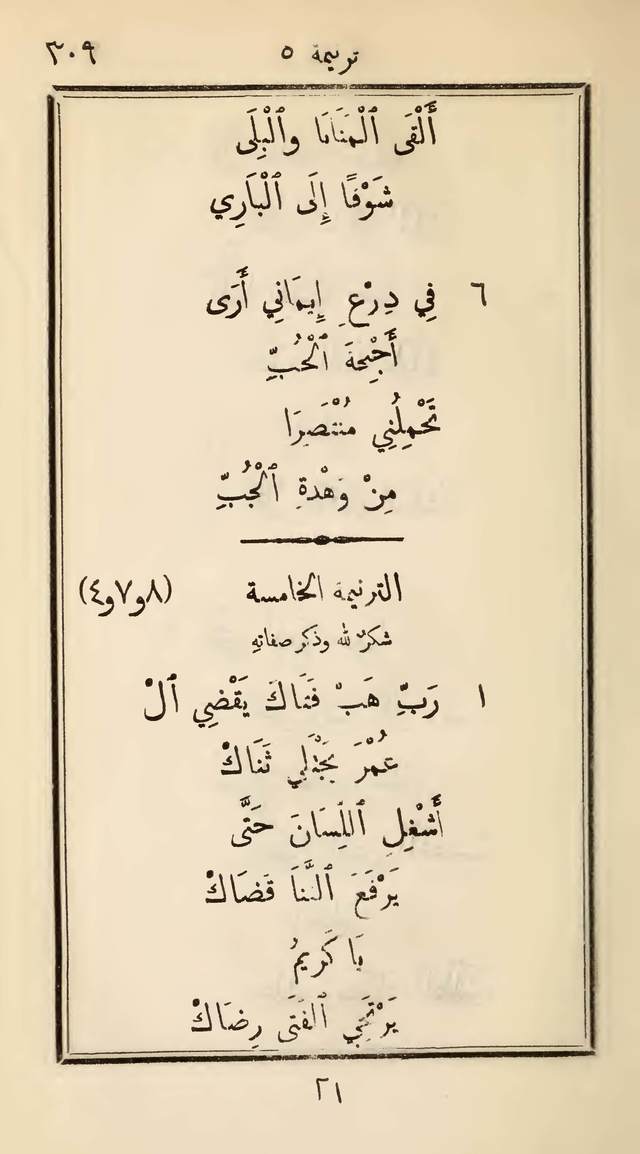 ترنيمة ٥ ٣٠٩
أَلْقَى ٱلْمَنَايَا وٱلْبِلَى
شَوْقًا إِلَى ٱلْبَارِي
٦ فِي دِرْعِ إِيمَانِي أَرَى
أَجْنِحَةَ ٱلْحُبِّ
تَحْمِلُنِي مُنْتَصِرَا
مِنْ وَهْدَةِ ٱلْجُبِّ
الترنيمة الخامسة (٨و٧و٤)
شكرٌ لله وذكر صفاتهِ
١ رَبِّ هَبْ فَتَاكَ يَقْضِي ٱلْ
عُمْرَ يَجْتَلِي ثَنَاكْ
أَشْغِلِ ٱللِّسَانَ حَتَّى
يَرْفَعَ ٱلثَّنَا قَضَاكْ
يَا كَرِيمُ
يَرْتَجِي ٱلفَتَى رِضَاكْ
٢١